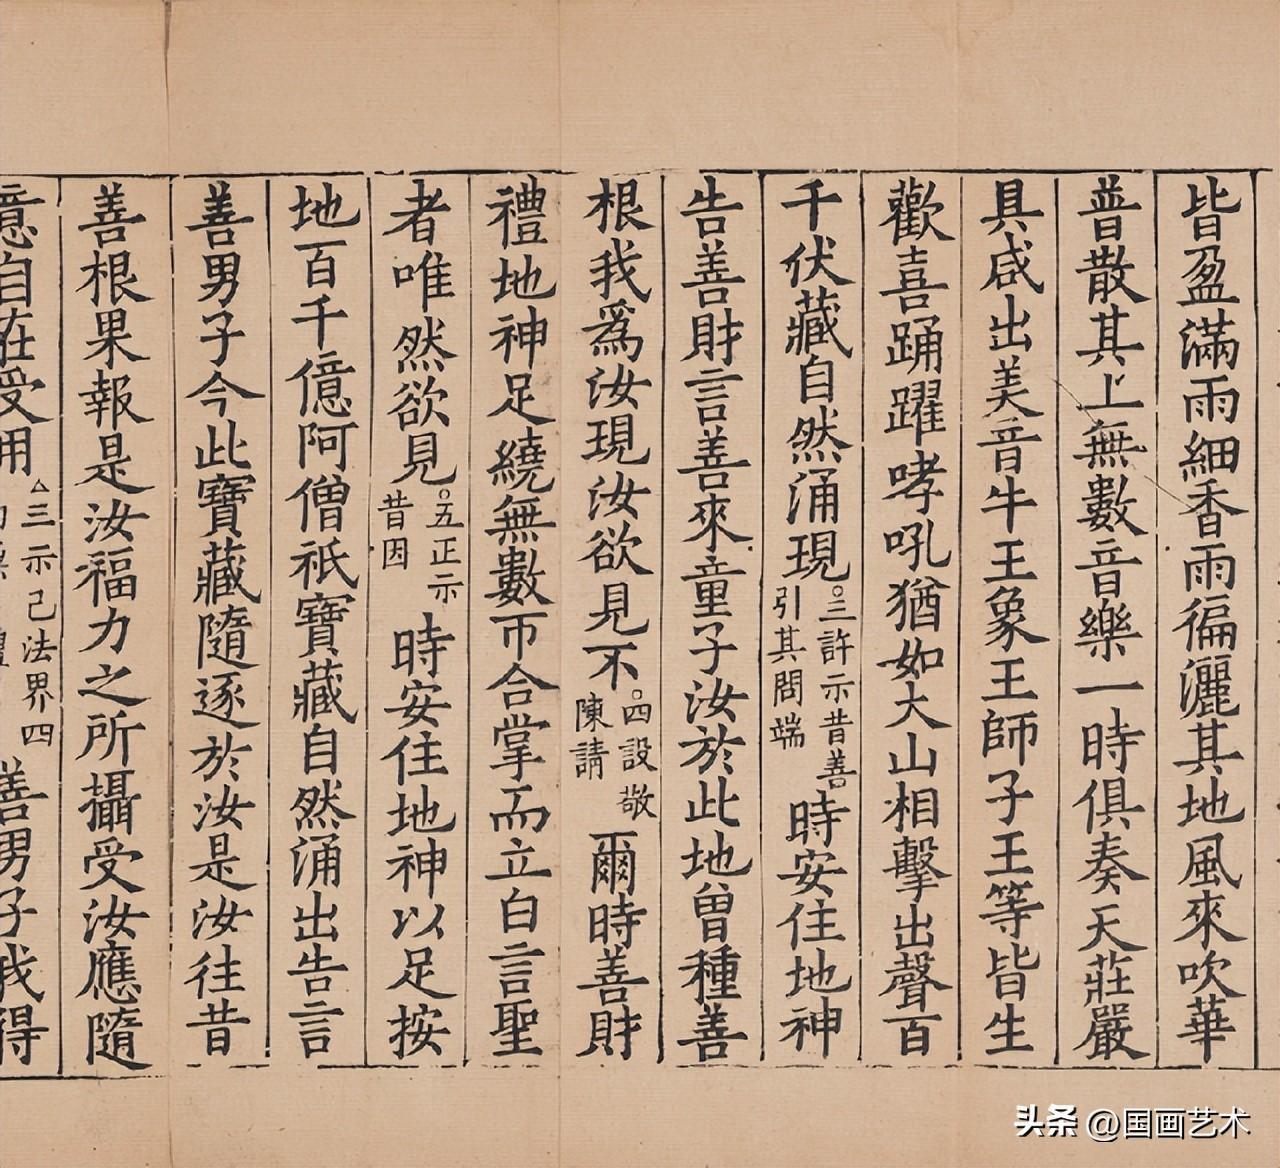 皆盈滿雨細香雨徧灑其地風來吹華
普散其上無數音樂一時俱奏天莊嚴
具咸出美音牛王象王師子王等皆生
歡喜踊躍哮吼猶如大山相擊出聲百
千伏藏自然涌現○三許示昔善引其問端時安住地神
告善財言善來童子汝於此地曾種善
根我爲汝現汝欲見不○四設敬陳請爾時善財
禮地神足繞無數帀合掌而立白言聖
者唯然欲見○五正示昔因時安住地神以足按
地百千億阿僧祇寶藏自然涌出告言
善男子今此寶藏隨逐於汝是汝往昔
善根果報是汝福力之所攝受汝應隨
意自在受用△三示己法界四善男子我得
头条 @国画艺术